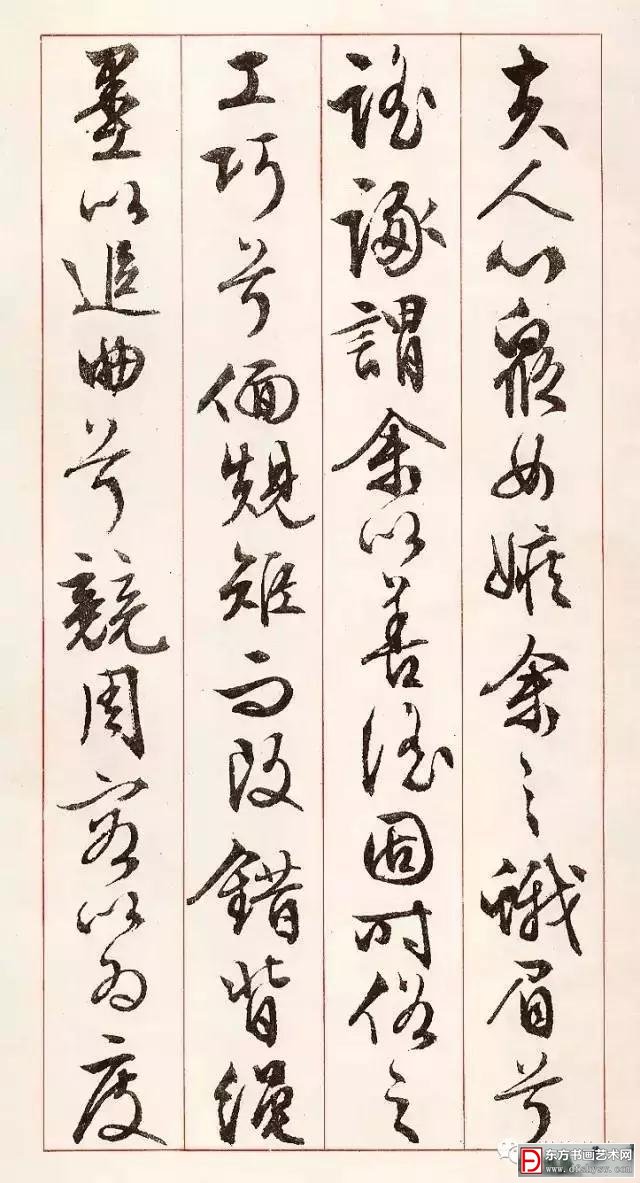 夫人心眾女嫉余之蛾眉兮
謠諑謂余以善淫固時俗之
工巧兮偭規矩而改錯背繩
墨以追曲兮競周容以為度
东方书画艺术网